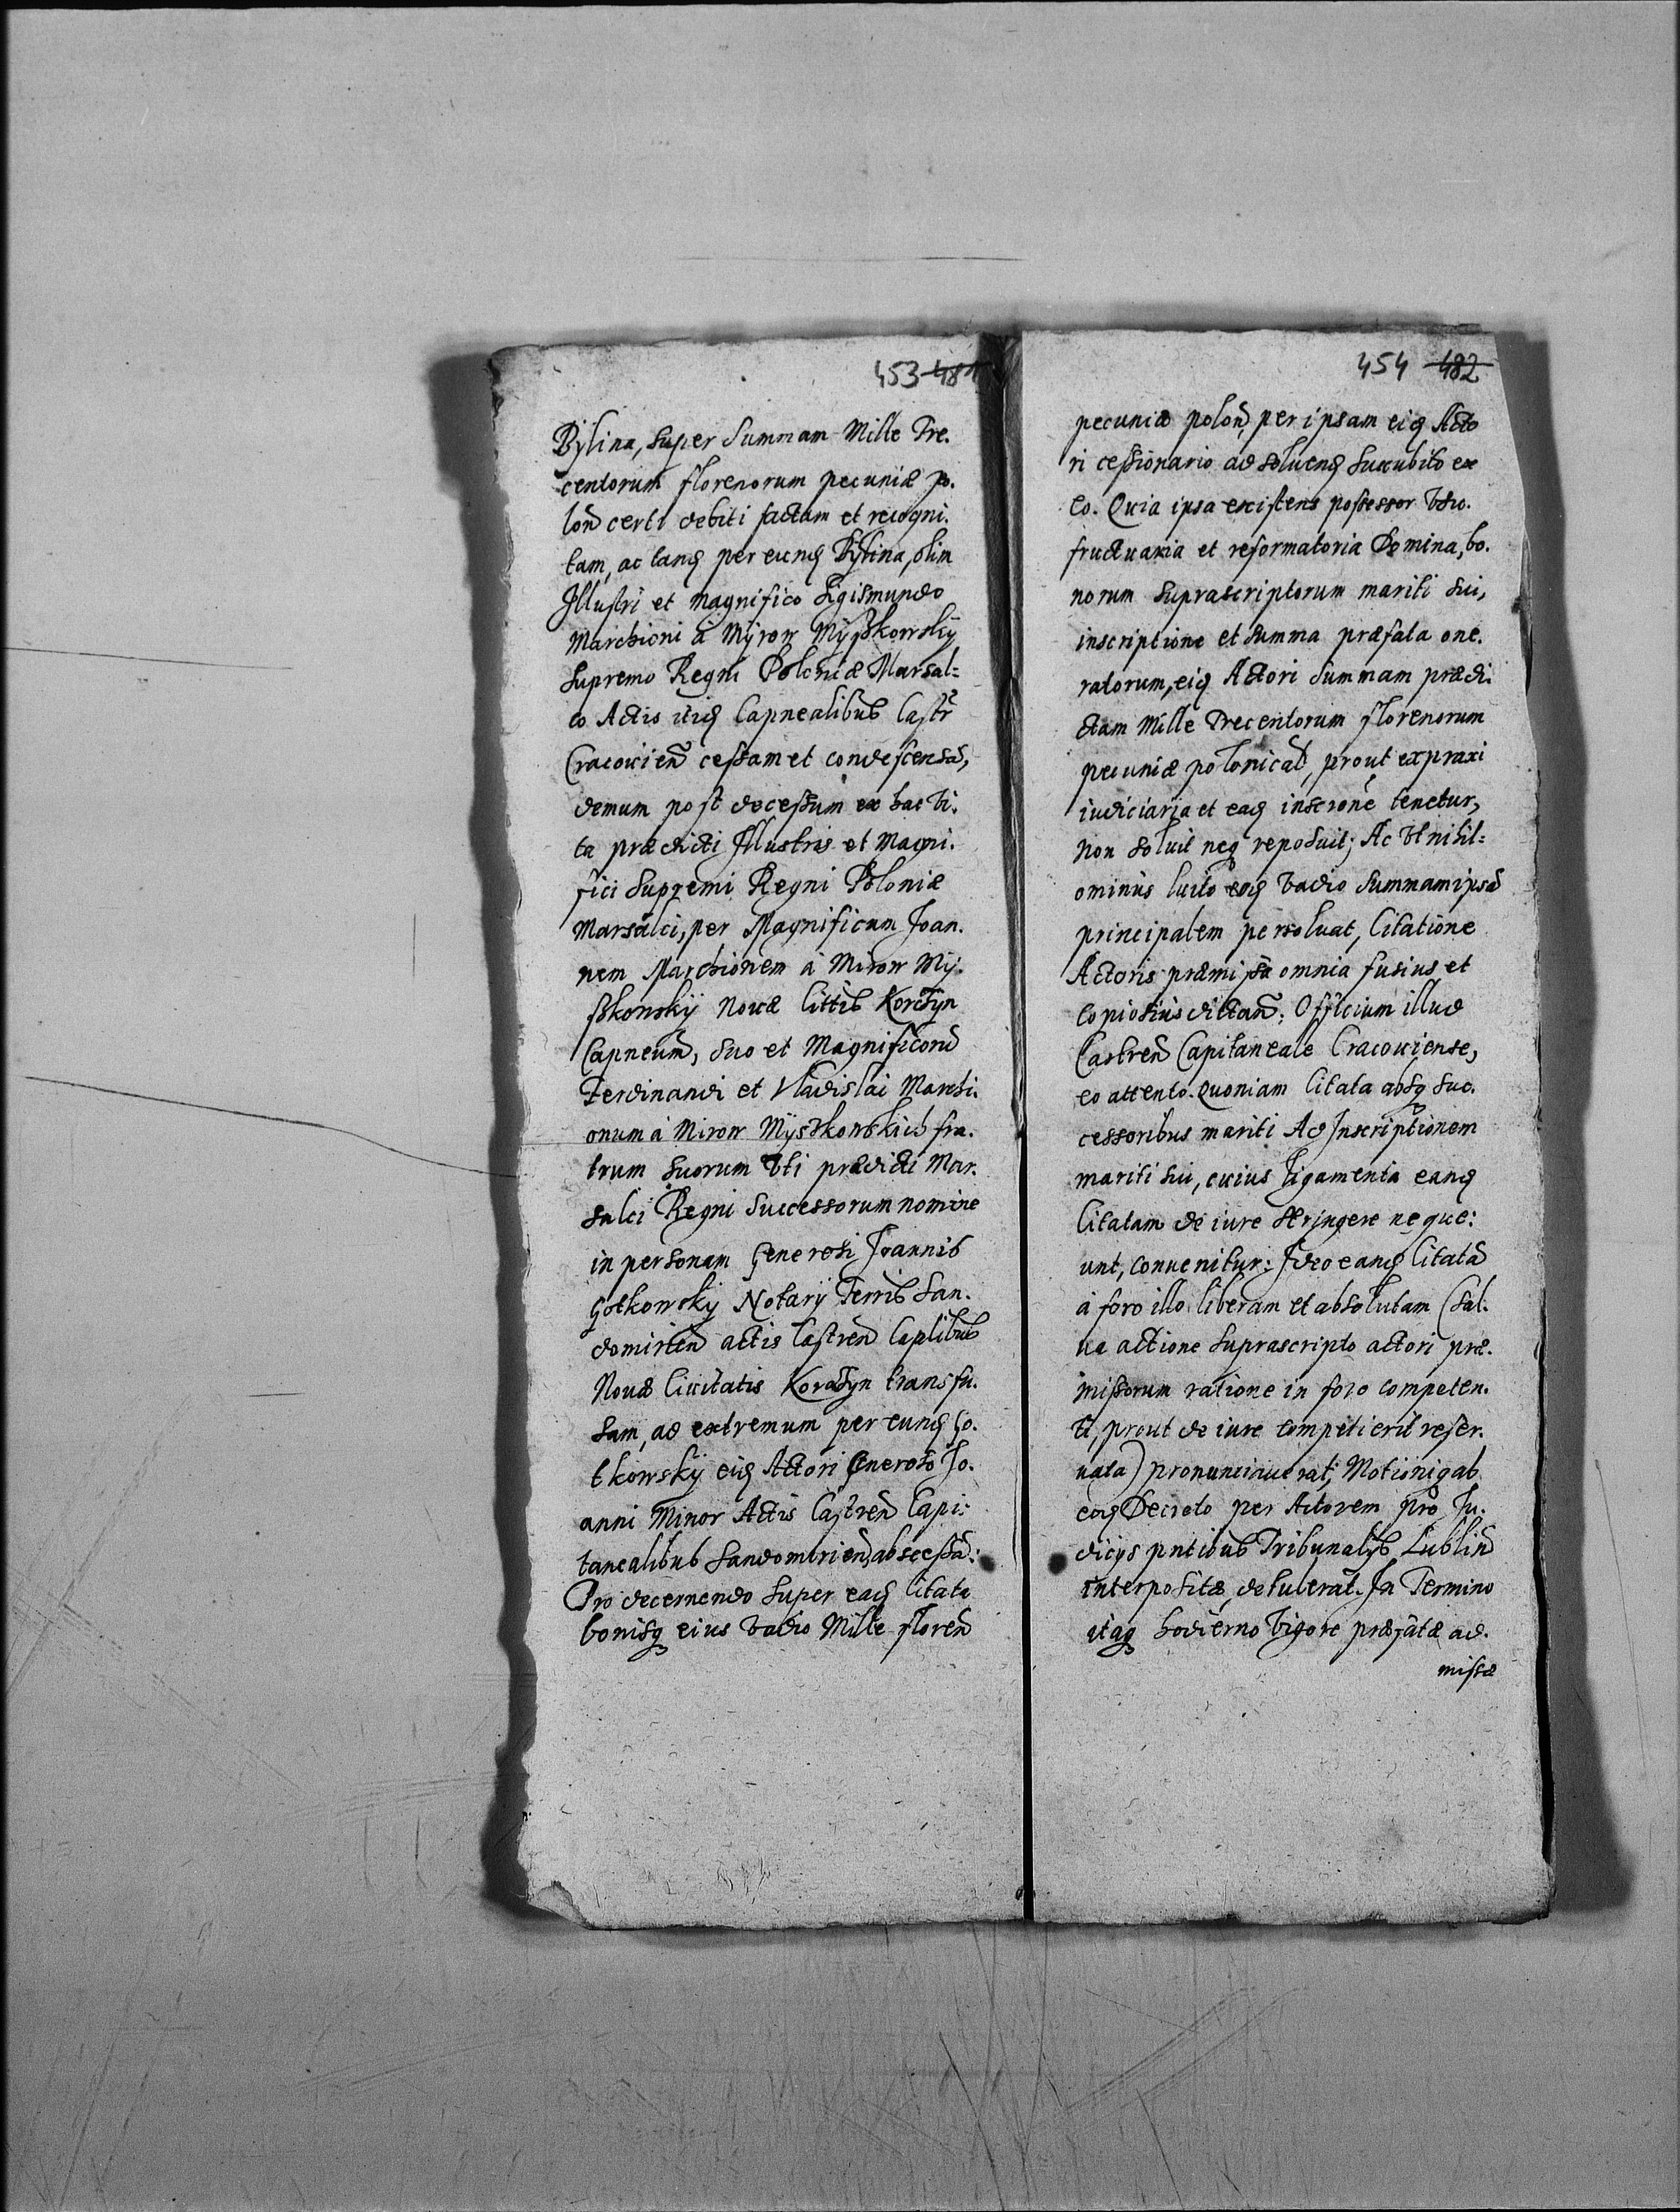 453 481
Bylina, super summam Mille Tre.
centorum florenorum pecuniæ po.
lon certi debiti factam et recogni.
tam, ac tanq per eunq Bylina, olim
Illustri et magnifico Sigismundo
Marchioni à Myrow Myszkowsky
supremo Regni Poloniæ Marsal=
co Actis itiq Capnealibus Castr
Cracovien cessam et condescensa,
demum post decessum ex hac vi.
ta prædicti Illustris et Magni.
fici supremi Regni Poloniæ
Marsalci, per Magnificum Joan.
nem Marchionem à Mirow My.
szkowskÿ Novæ Cittis Korczyn
Capneum, suo et Magnificoru
Ferdinandi et Vladislai Marchi.
onum à Mirow Myszkowskich fra.
trum suorum vti prædicti Mar.
salci Regni successorum nomine
in personam Generosi Joannis
Gotkowsky Notarÿ Terris San.
domirien actis Castren Caplibus
Novæ Civitatis Korczyn transfu.
sam, ad extremum per eunq Go.
tkowsky eiq Actori Generoso Jo.
anni Minor Actis Castren Capi:
tanealibus Sandomirien, abscessa:
Pro decernendo super eaq Citata
bonisq eius vadio Mille floren
454 482
pecuniæ polon, per ipsam eiq Acto
ri cessionario ad soluenq succubito ex
eo. Quia ipsa existens possessor vsu.
fructuaria et reformatoria Domina, bo.
norum suprascriptorum mariti sui,
inscriptione et summa præfata one.
ratorum, eiq Actori summam prædi.
ctam Mille Trecentorum florenorum
pecuniæ polonical, prout ex praxi
iudiciaria et eaq inscrone tenetur,
non soluit neq reposuit; Ac vt nihil=
ominus luito eoq vadio summam ipsa
principalem persoluat, Citatione
Actoris præmissa omnia fusius et
copiosius dictan: Officium illud
Castren Capitaneale Cracouiense,
eo attento. Quoniam Citata absq suc.
cessoribus mariti Ad Inscriptionem
mariti sui, cuius ligamenta eanq
Citatam de iure stringere neque:
unt, conuenitur: Ideo eanq Citata
à foro illo liberam et absolutam (sal.
ua actione suprascripto actori præ.
missorum ratione in foro competen.
ti, prout de iure competierit reser.
uata) pronunciauerat; Motioniq ab
eoq Decreto per Actorem pro Ju.
dicys pntibus Tribunalÿs Lublin
interpositæ, detulerat. In Termino
itaq hodierno vigore præfatæ ad.
missæ